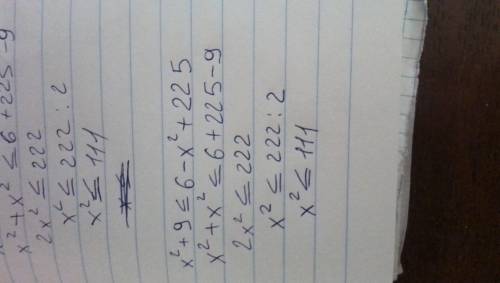 x² + x² ≤ 6 + 225 - 9
2x² ≤ 222
x² ≤ 222 : 2
x² ≤ 111
x² + 9 ≤ 6 - x² + 225
x² + x² ≤ 6 + 225 - 9
2x² ≤ 222
x² ≤ 222 : 2
x² ≤ 111